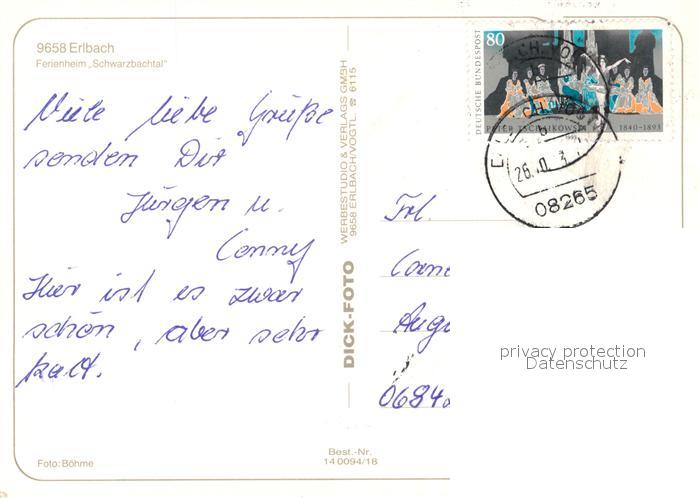 9658 Erlbach
Ferienheim „Schwarzbachtal"
Viele liebe Grüße
senden Dir
Jürgen u.
Conny
Hier ist es zwar
schön, aber sehr
kalt.
Foto: Böhme
DICK-FOTO WERBESTUDIO & VERLAGS GMBH
9658 ERLBACH/VOGTL. ☎ 6115
Best.-Nr.
14 0094/18
80
DEUTSCHE BUNDESPOST
PETER TSCHAIKOWSKY 1840-1893
08265
Frl.
Corne
Augu
0684
privacy protection
Datenschutz